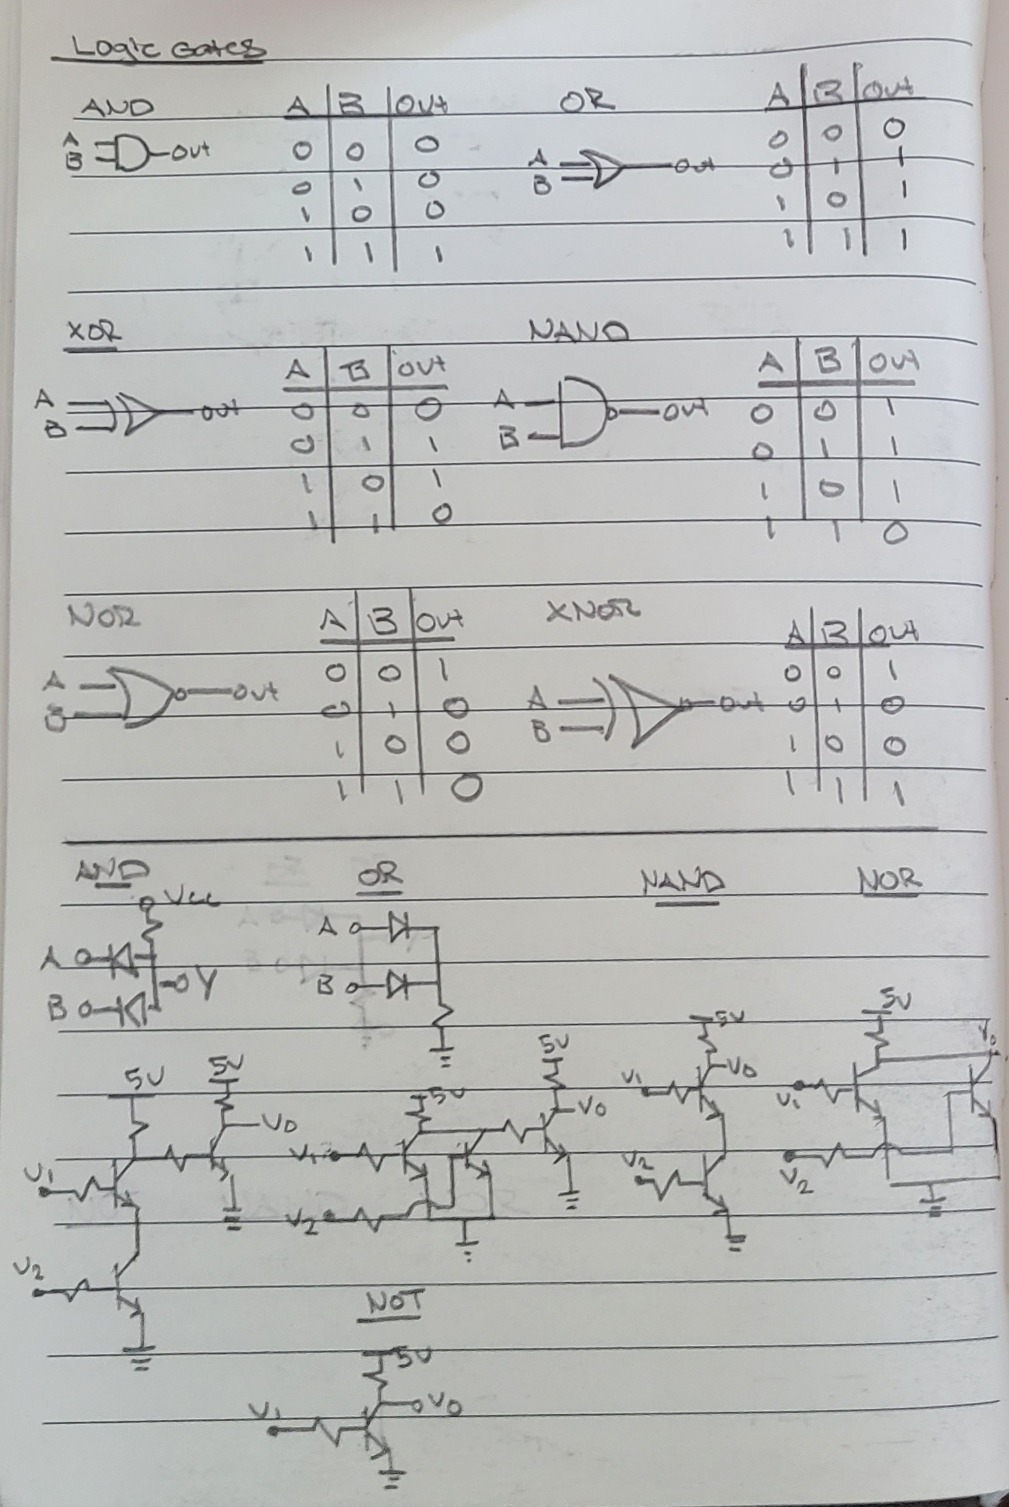 Logic Gates
AND A B Out OR A B Out
A
B out 0 0 0 A
B out 0 0 0
0 1 0 0 1 1
1 0 0 1 0 1
1 1 1 1 1 1
XOR NAND
A B out A B out
A
B out 0 0 0 A
B out 0 0 1
0 1 1 0 1 1
1 0 1 1 0 1
1 1 0 1 1 0
NOR A B Out XNOR A B Out
A
B out 0 0 1 A
B out 0 0 1
0 1 0 0 1 0
1 0 0 1 0 0
1 1 0 1 1 1
AND OR NAND NOR
Vcc
A B Y
A B
5V 5V VO V1 V2
5V 5V VO V1 V2
5V VO V1 V2
5V Vo V1 V2
NOT
5V
V1 VO